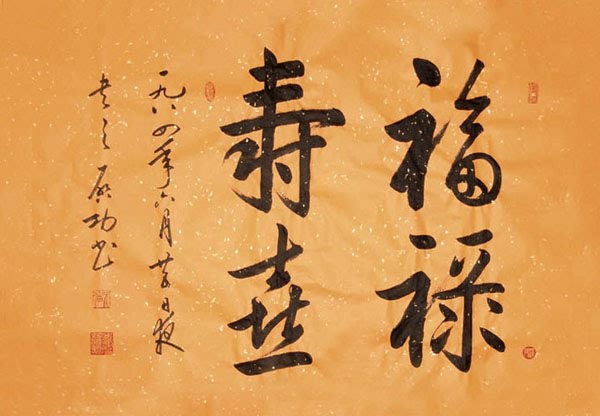 福禄
寿喜
一九八四年六月日夜
启功书